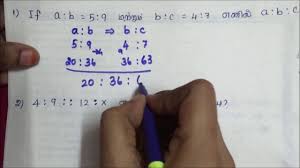 1) If a:b = 5:9 மற்றும் b:c = 4:7 எனில் a:b:c
a:b ⇒ b:c
5:9 4:7
20:36 36:63
20 : 36 : 6
2) 4:9 :: 12:x